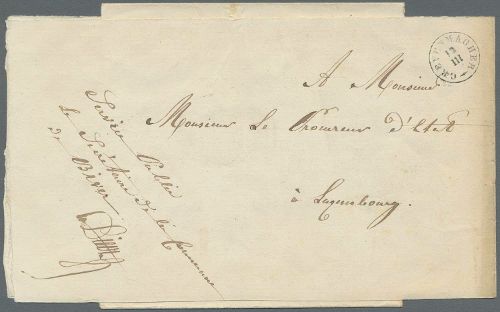 GREVENMACHER
12
III
A Monsieur
Monsieur Le Procureur d'Etat
à Luxembourg.
Service Public
Le Secrétaire de la Commune
de Biver